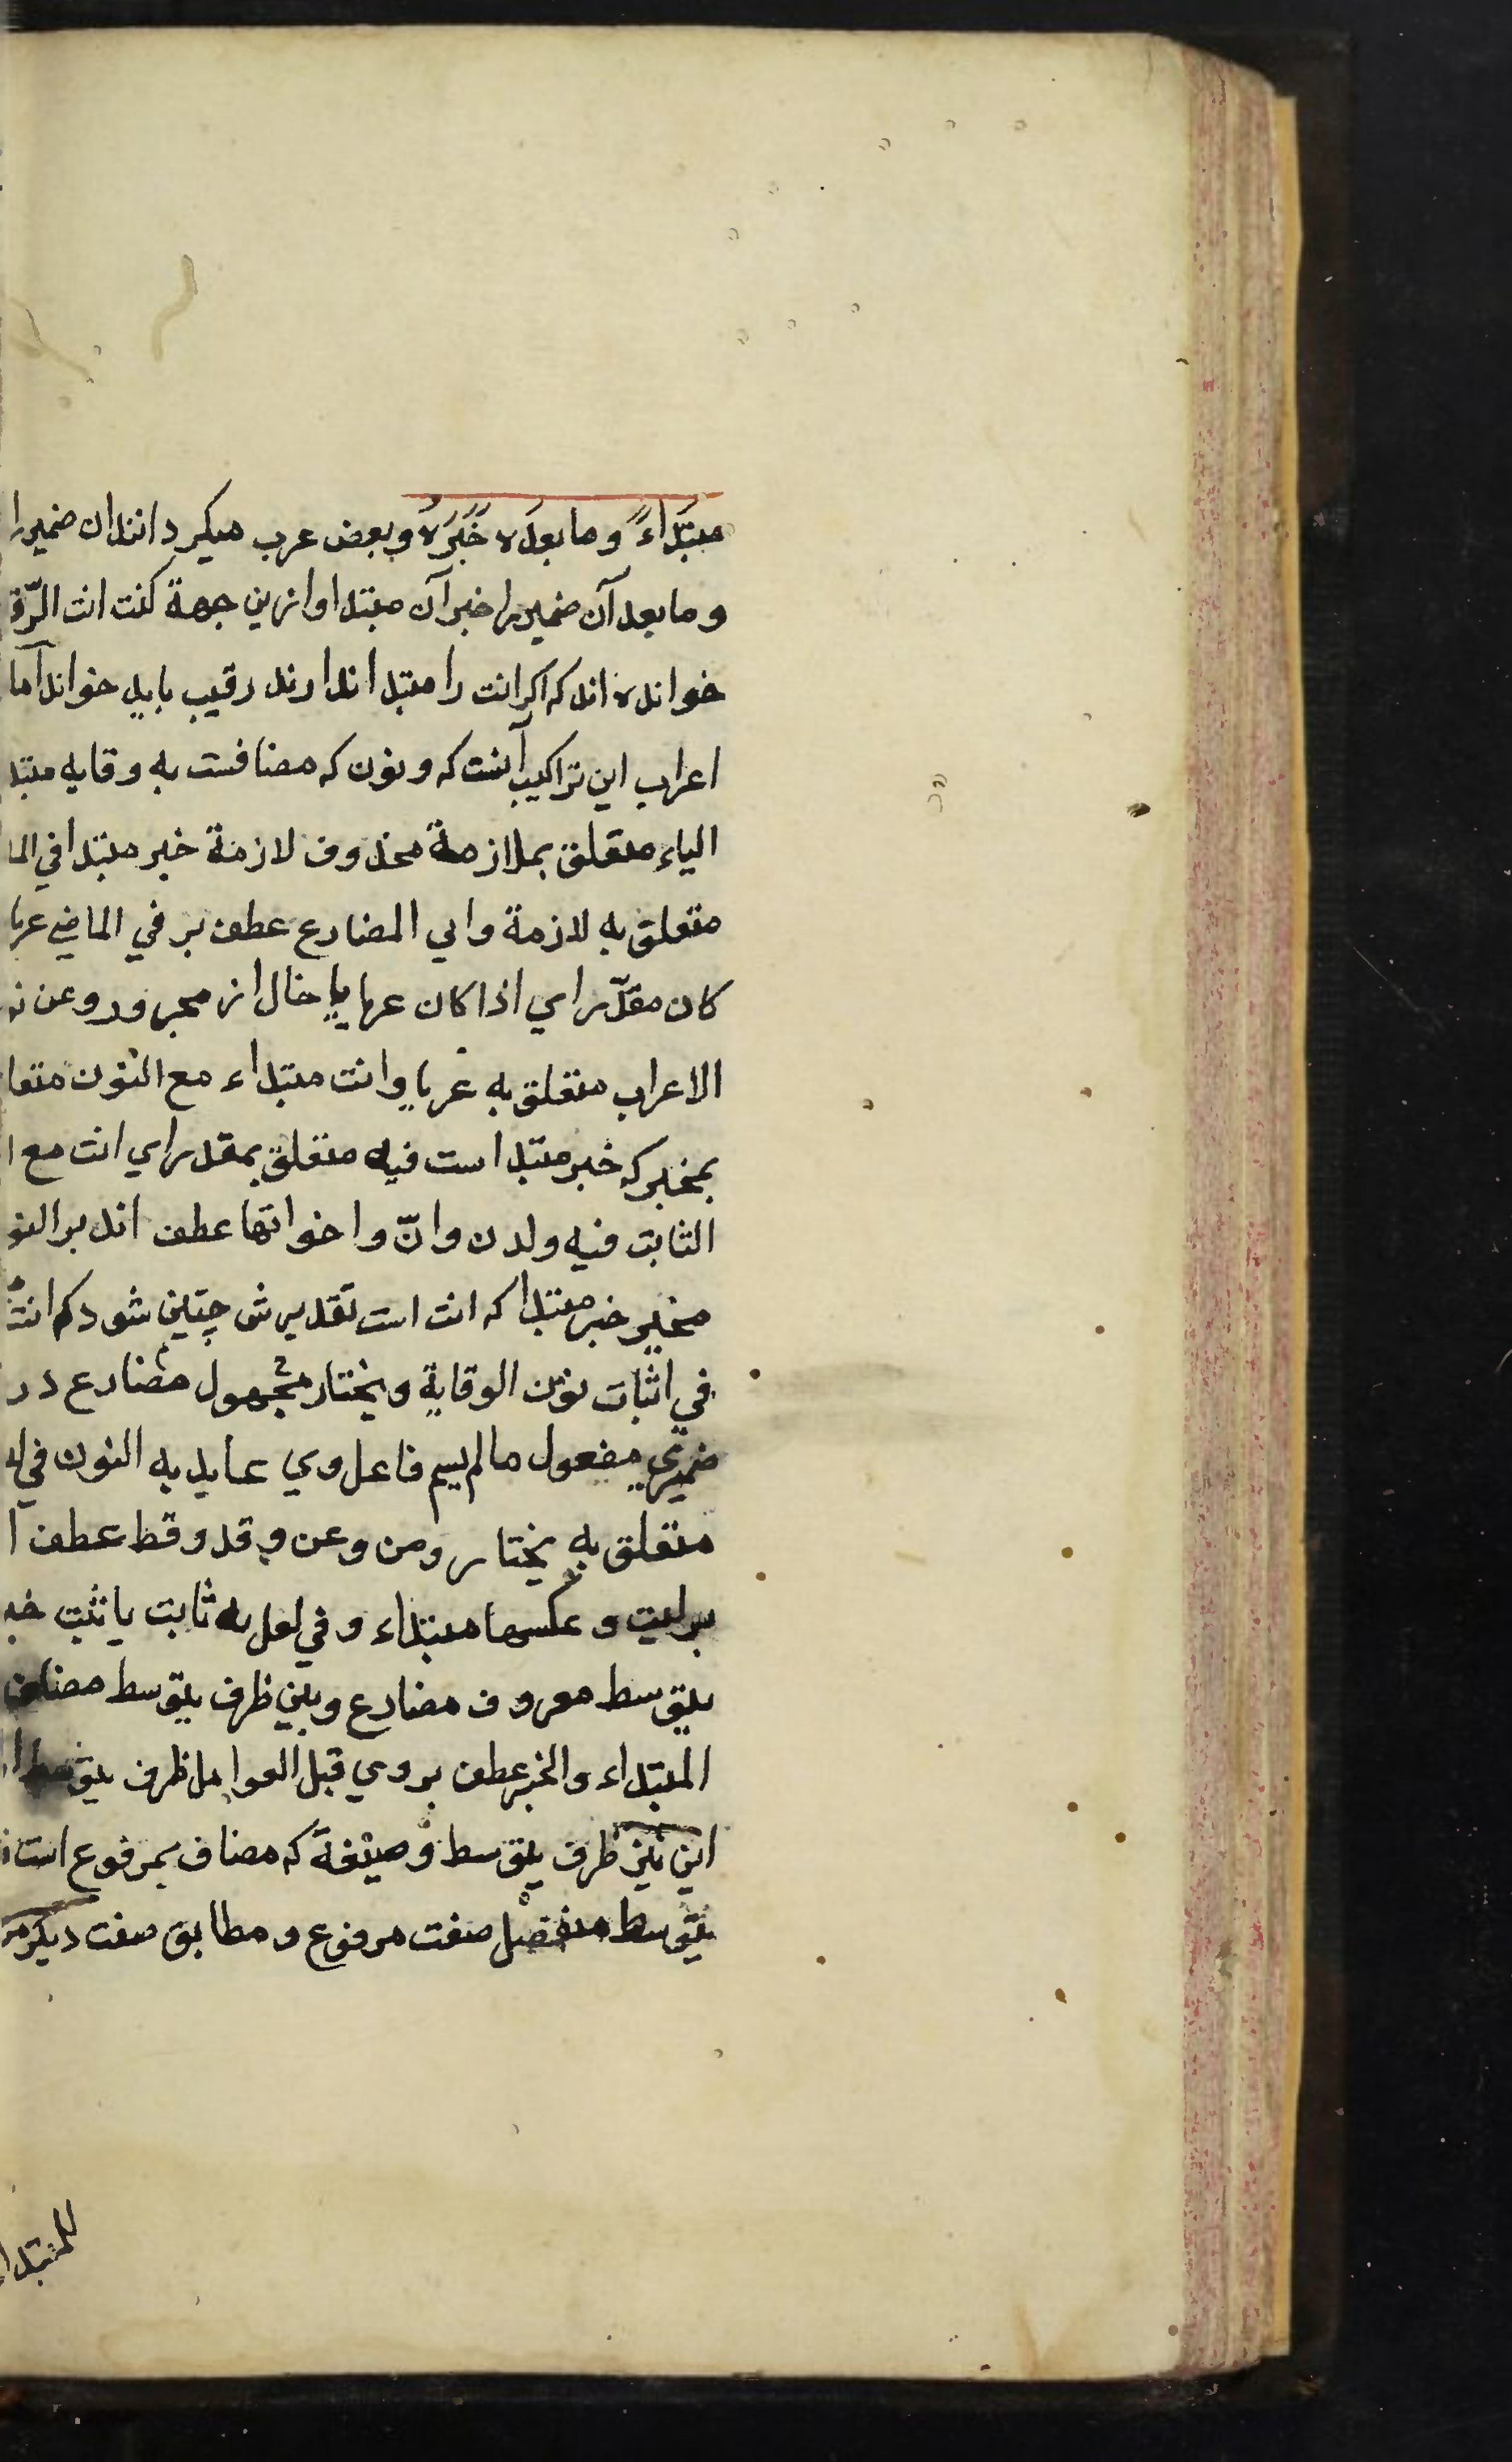 مبتَداءً وما بعدَه خَبَرَهُ وبعض عرب میکرداننـد ان ضمیر را
وما بعد آن ضمیر را خبر آن مبتدا وازین جهة کنت انت الرّقـ
خوانده اند که اکر انت را مبتدا ندارند رقیب باید خواند اما
اعراب این تراکیب آنست که و نون که مضافست به وقایه مبتد
الیاء متعلق بملازمة محذوف لازمة خبر مبتدا في الما
متعلق به لازمة وای المضارع عطف بر في الماضي عریا
کان مقدّر اي اذا کان عریا یا حال از مجرور وعن نـ
الاعراب متعلق به عریا وانت مبتداء مع النون متعا
بمخیر که خبر مبتدا است فیه متعلق بمقدر اي انت مع ا
الثابت فیه ولدن وانّ واخواتها عطف اند بر النو
مخیر خبر مبتدا که انت است تقدیرش چنین شود که انت
في اثبات نون الوقایة ویختار مجهول مضارع در
ضمیری مفعول ما لم یسم فاعل وي عاید به النون في
متعلق به یختار ومن وعن وقد وقط عطف ا
بر لیت وعکسها مبتداء وفي لعل به ثابت یا ثبت خبـ
یتوسط معروف مضارع وبین ظرف یتوسط مضاف
المبتداء والخبر عطف بر وي قبل العوامل ظرف یتوسط
این نیز ظرف یتوسط وصیغة که مضاف بمرفوع است
یتوسط منفصل صفت مرفوع ومطابق صفت دیکر مر
للمبتدا